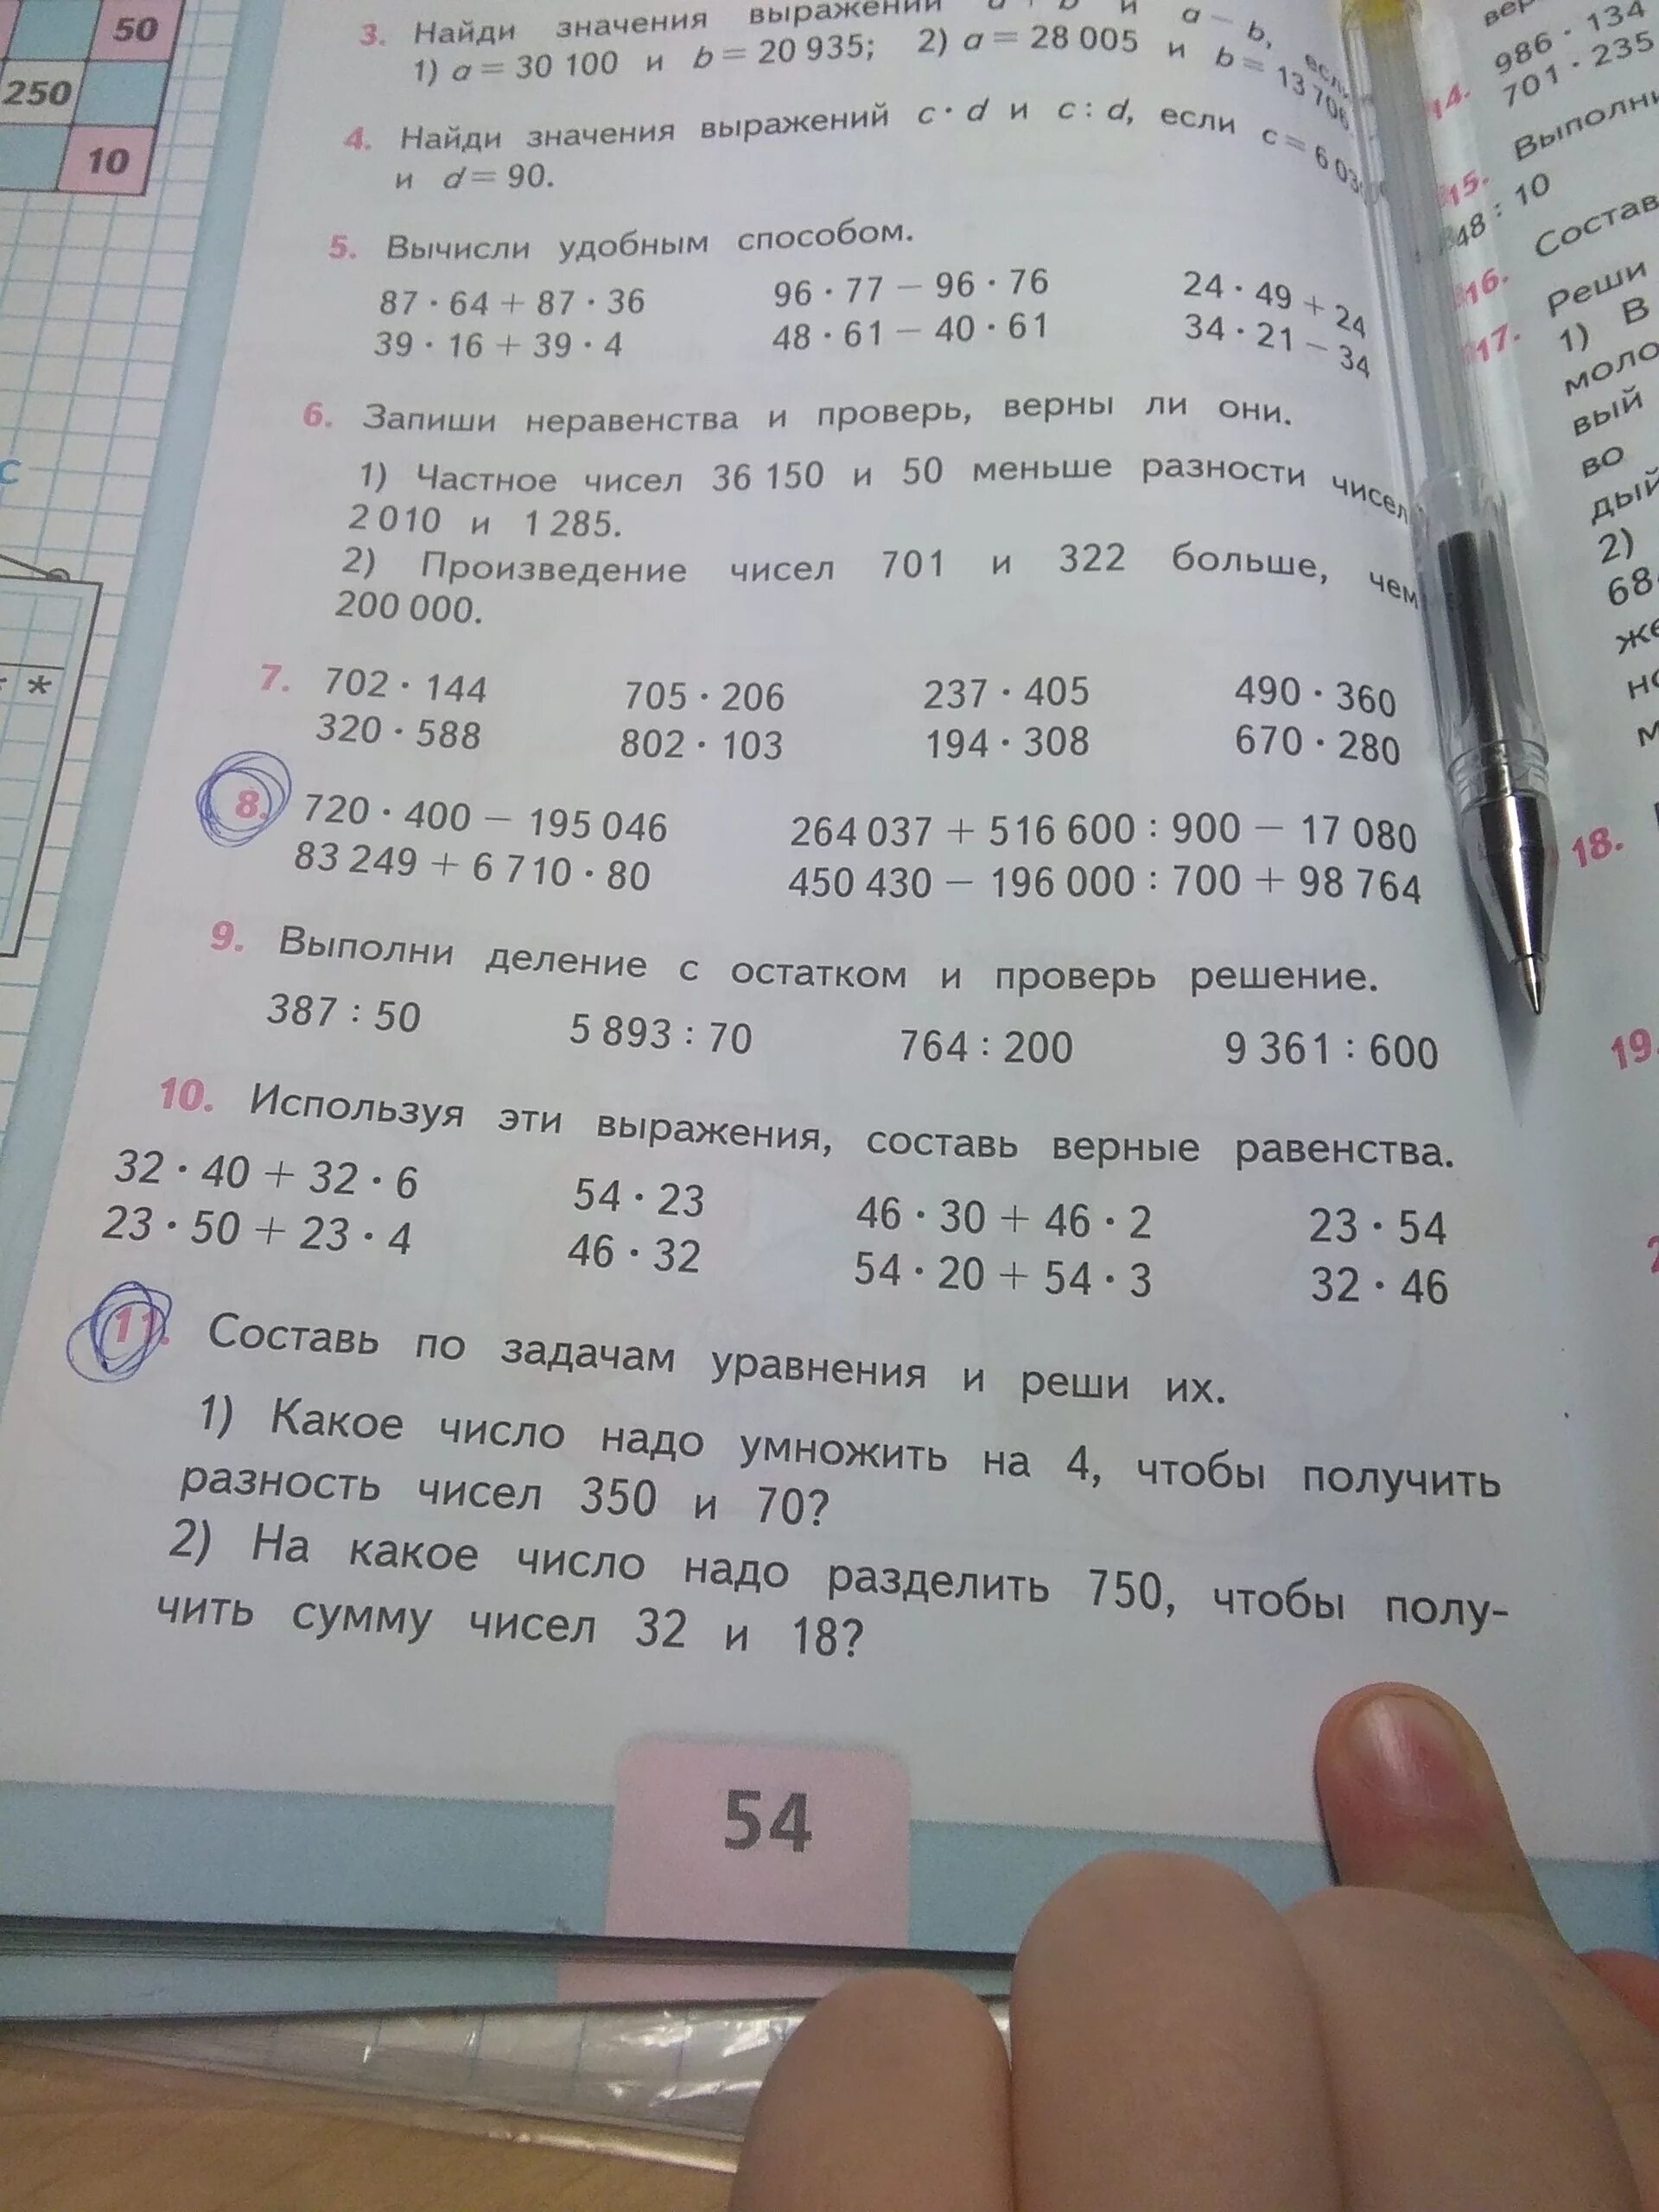 50
250
10
с
* 
3. Найди значения выражений
а - b,
1) a = 30 100 и b = 20 935; 2) a = 28 005 и b = 13 706
4. Найди значения выражений c · d и c : d, если c =
и d = 90.
5. Вычисли удобным способом.
87 · 64 + 87 · 36 96 · 77 − 96 · 76 24 · 49 + 24
39 · 16 + 39 · 4 48 · 61 − 40 · 61 34 · 21 − 34
6. Запиши неравенства и проверь, верны ли они.
1) Частное чисел 36 150 и 50 меньше разности чисел
2 010 и 1 285.
2) Произведение чисел 701 и 322 больше, чем
200 000.
7. 702 · 144 705 · 206 237 · 405 490 · 360
320 · 588 802 · 103 194 · 308 670 · 280
8. 720 · 400 − 195 046 264 037 + 516 600 : 900 − 17 080
83 249 + 6 710 · 80 450 430 − 196 000 : 700 + 98 764
9. Выполни деление с остатком и проверь решение.
387 : 50 5 893 : 70 764 : 200 9 361 : 600
10. Используя эти выражения, составь верные равенства.
32 · 40 + 32 · 6 54 · 23 46 · 30 + 46 · 2 23 · 54
23 · 50 + 23 · 4 46 · 32 54 · 20 + 54 · 3 32 · 46
11. Составь по задачам уравнения и реши их.
1) Какое число надо умножить на 4, чтобы получить
разность чисел 350 и 70?
2) На какое число надо разделить 750, чтобы полу-
чить сумму чисел 32 и 18?
54
986 · 134
14. 701 · 235
15.
48 : 10
16.
17. Реши
1) В
вый
во
2)
18.
19.